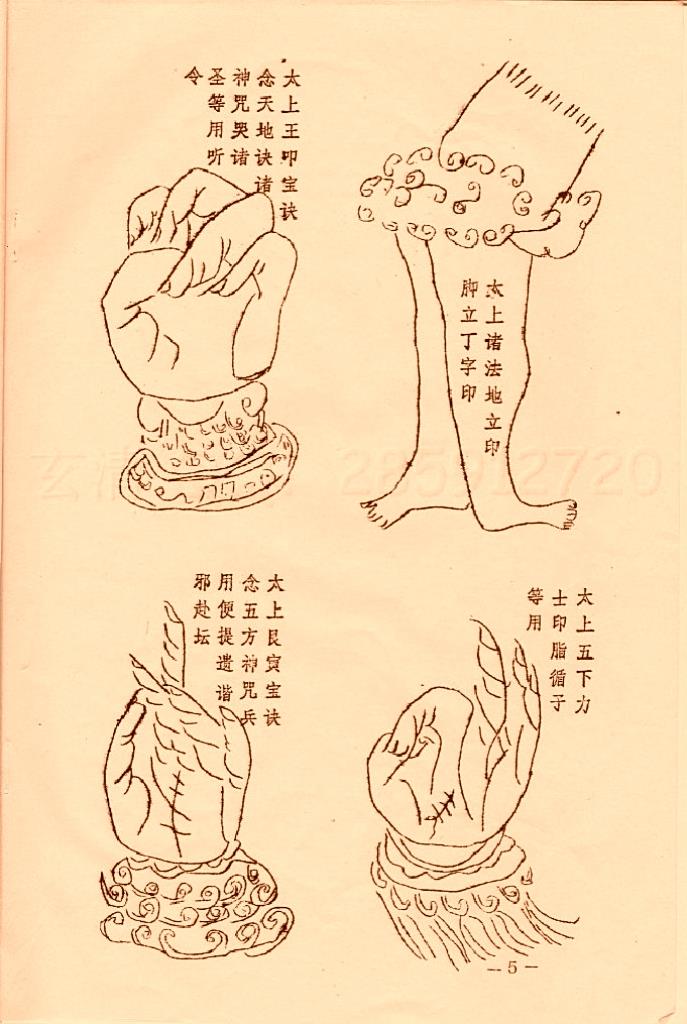 太上诸法地立印
脚立丁字印
太上王叩宝诀
念天地诀诸
神咒哭诸
圣等用听
令
太上五下力
士印脂循子
等用
太上艮寅宝诀
念五方神咒兵
用便提遣谐
邪赴坛
285912720
—5—